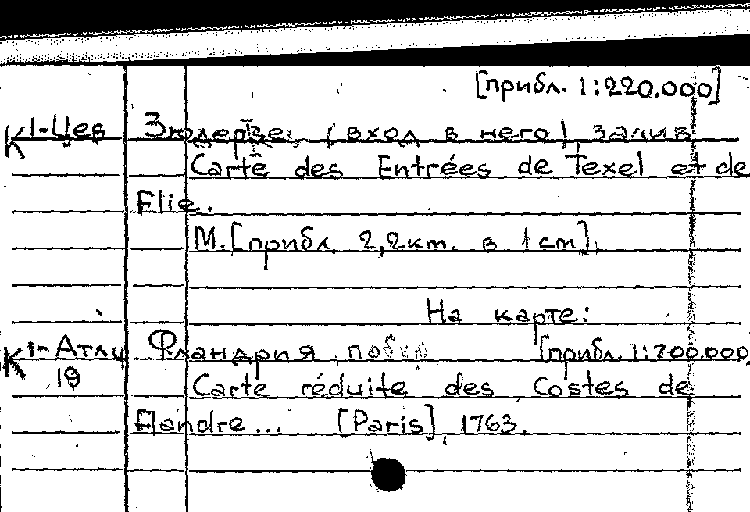 [прибл. 1:220.000]
К1-Цев Зюдерзее (вход в него), залив
Carte des Entrées de Texel et de
Flie.
М.[прибл. 2,2км. в 1см].
На карте:
К1-Атлц Фландрия, побер [прибл. 1:700.000
19 Carte réduite des Costes de
Flandre... [Paris], 1763.